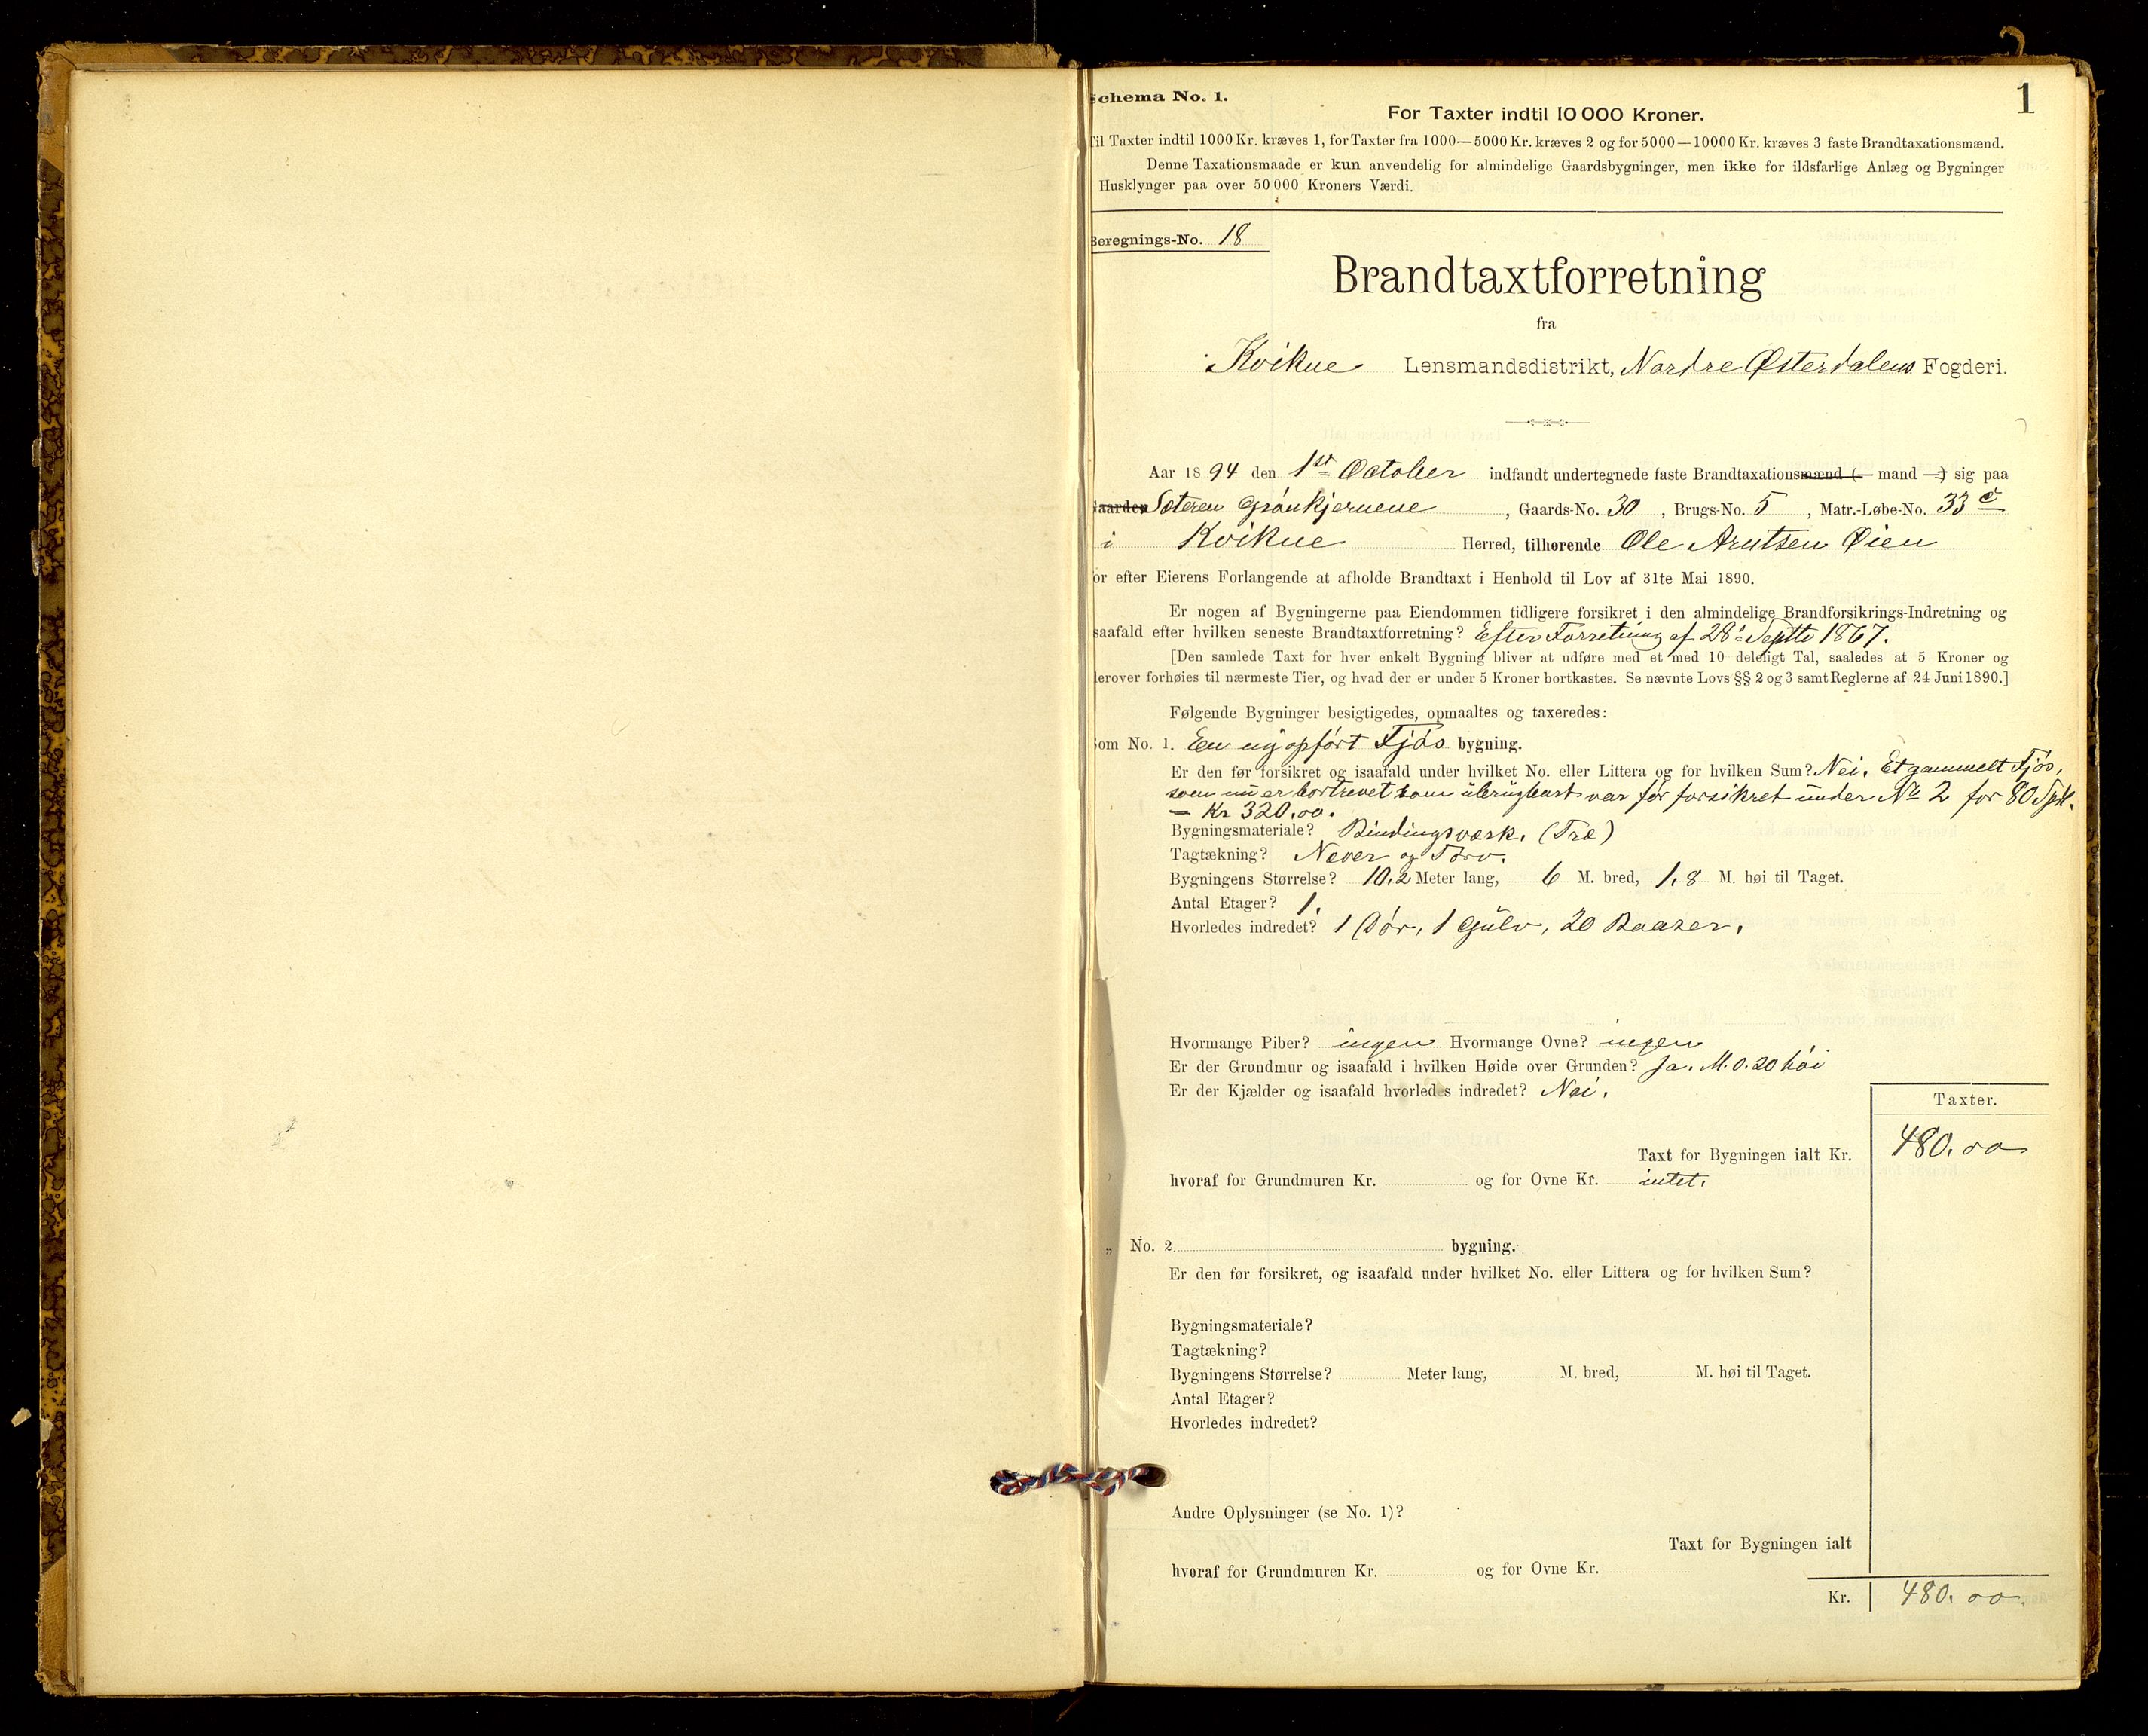 1
Schema No. 1.
For Taxter indtil 10 000 Kroner.
Til Taxter indtil 1000 Kr. kræves 1, for Taxter fra 1000—5000 Kr. kræves 2 og for 5000—10000 Kr. kræves 3 faste Brandtaxationsmænd.
Denne Taxationsmaade er kun anvendelig for almindelige Gaardsbygninger, men ikke for ildsfarlige Anlæg og Bygninger
Husklynger paa over 50 000 Kroners Værdi.
Beregnings-No. 18
Brandtaxtforretning
fra
Kvikne Lensmandsdistrikt, Nordre Østerdalens Fogderi.
Aar 1894 den 1ste October indfandt undertegnede faste Brandtaxationsmænd (— mand —) sig paa
Gaarden Sæteren Grönkjernene, Gaards-No. 30, Brugs-No. 5, Matr.-Løbe-No. 33 c
i Kvikne Herred, tilhørende Ole Arntsen Øien
for efter Eierens Forlangende at afholde Brandtaxt i Henhold til Lov af 31te Mai 1890.
Er nogen af Bygningerne paa Eiendommen tidligere forsikret i den almindelige Brandforsikrings-Indretning og
isaafald efter hvilken seneste Brandtaxtforretning? Efter Forretning af 28de Septbr 1867.
[Den samlede Taxt for hver enkelt Bygning bliver at udføre med et med 10 deleligt Tal, saaledes at 5 Kroner og
derover forhøies til nærmeste Tier, og hvad der er under 5 Kroner bortkastes. Se nævnte Lovs §§ 2 og 3 samt Reglerne af 24 Juni 1890.]
Følgende Bygninger besigtigedes, opmaaltes og taxeredes:
Som No. 1. En nyopfört Fjös bygning.
Er den før forsikret og isaafald under hvilket No. eller Littera og for hvilken Sum? Nei. Et gammelt Fjös,
som nu er bortrevet som ubrugbart var för forsikret under No 2 for 80 Spdl.
— Kr 320,00.
Bygningsmateriale? Bindingsværk. (Træ)
Tagtækning? Næver og Torv.
Bygningens Størrelse? 10,2 Meter lang, 6 M. bred, 1,8 M. høi til Taget.
Antal Etager? 1.
Hvorledes indredet? 1 Dör, 1 Gulv, 20 Baaser.
Hvormange Piber? ingen Hvormange Ovne? ingen
Er der Grundmur og isaafald i hvilken Høide over Grunden? Ja. M. 0.20 höi
Er der Kjælder og isaafald hvorledes indredet? Nei.
Taxter.
Taxt for Bygningen ialt Kr. 480.00
hvoraf for Grundmuren Kr. og for Ovne Kr. intet.
„ No. 2 bygning.
Er den før forsikret, og isaafald under hvilket No. eller Littera og for hvilken Sum?
Bygningsmateriale?
Tagtækning?
Bygningens Størrelse? Meter lang, M. bred, M. høi til Taget.
Antal Etager?
Hvorledes indredet?
Andre Oplysninger (se No. 1)?
Taxt for Bygningen ialt
hvoraf for Grundmuren Kr. og for Ovne Kr.
Kr. 480.00.